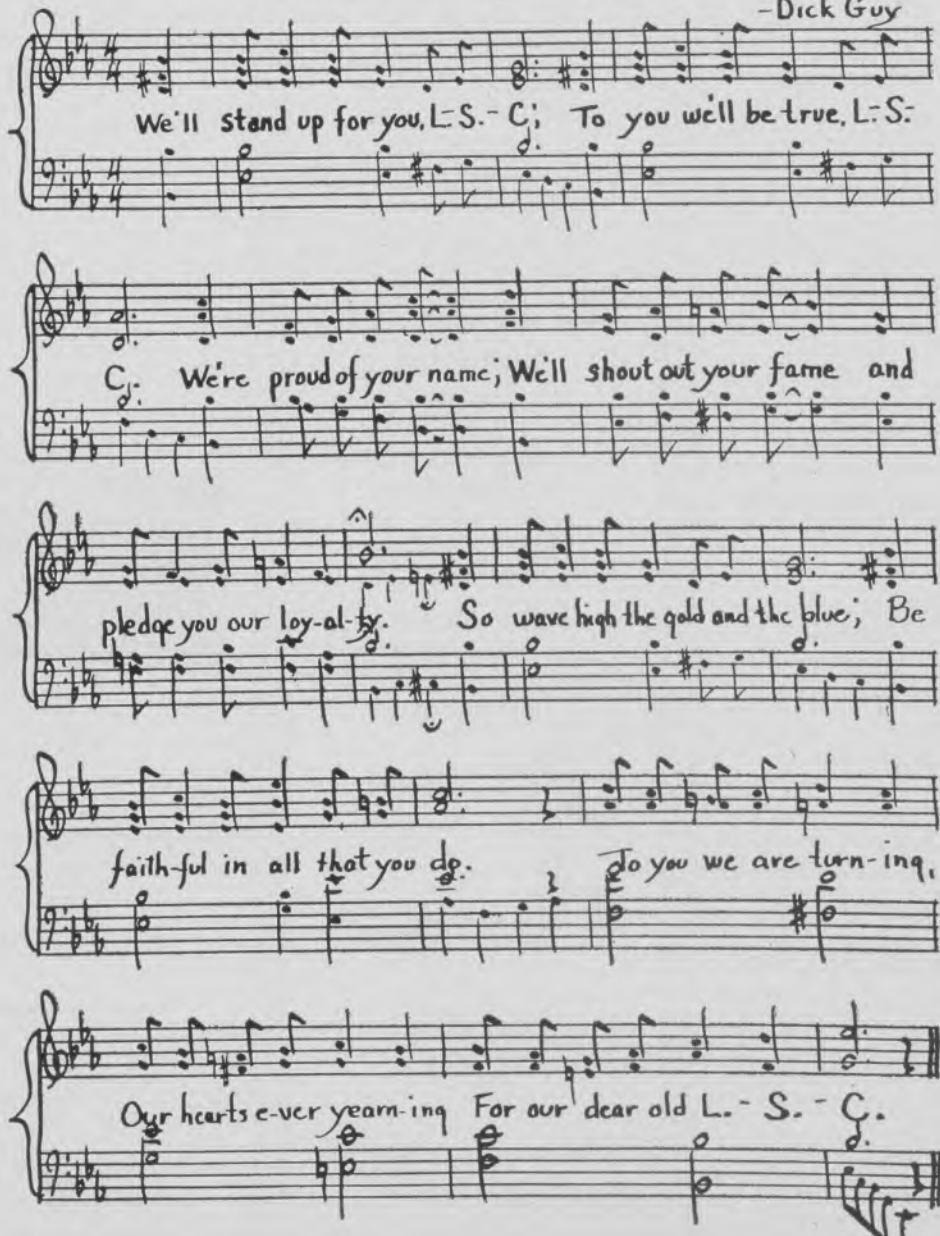 -Dick Guy
We'll stand up for you, L.-S.-C; To you we'll be true, L.-S.-
C. We're proud of your name; We'll shout out your fame and
pledge you our loy-al-ty. So wave high the gold and the blue; Be
faith-ful in all that you do. To you we are turn-ing,
Our hearts e-ver yearn-ing For our dear old L.-S.-C.